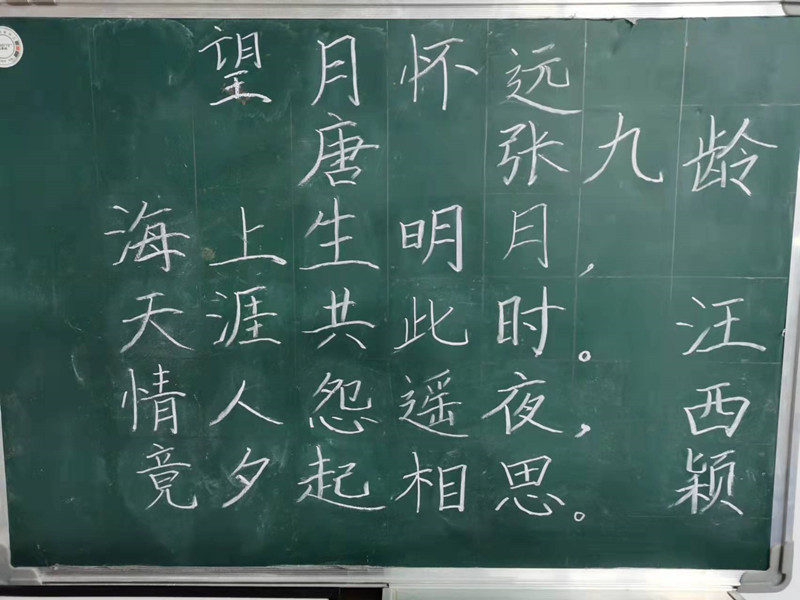 望月怀远
唐 张九龄
海上生明月,
天涯共此时。
情人怨遥夜,
竟夕起相思。
汪西颖